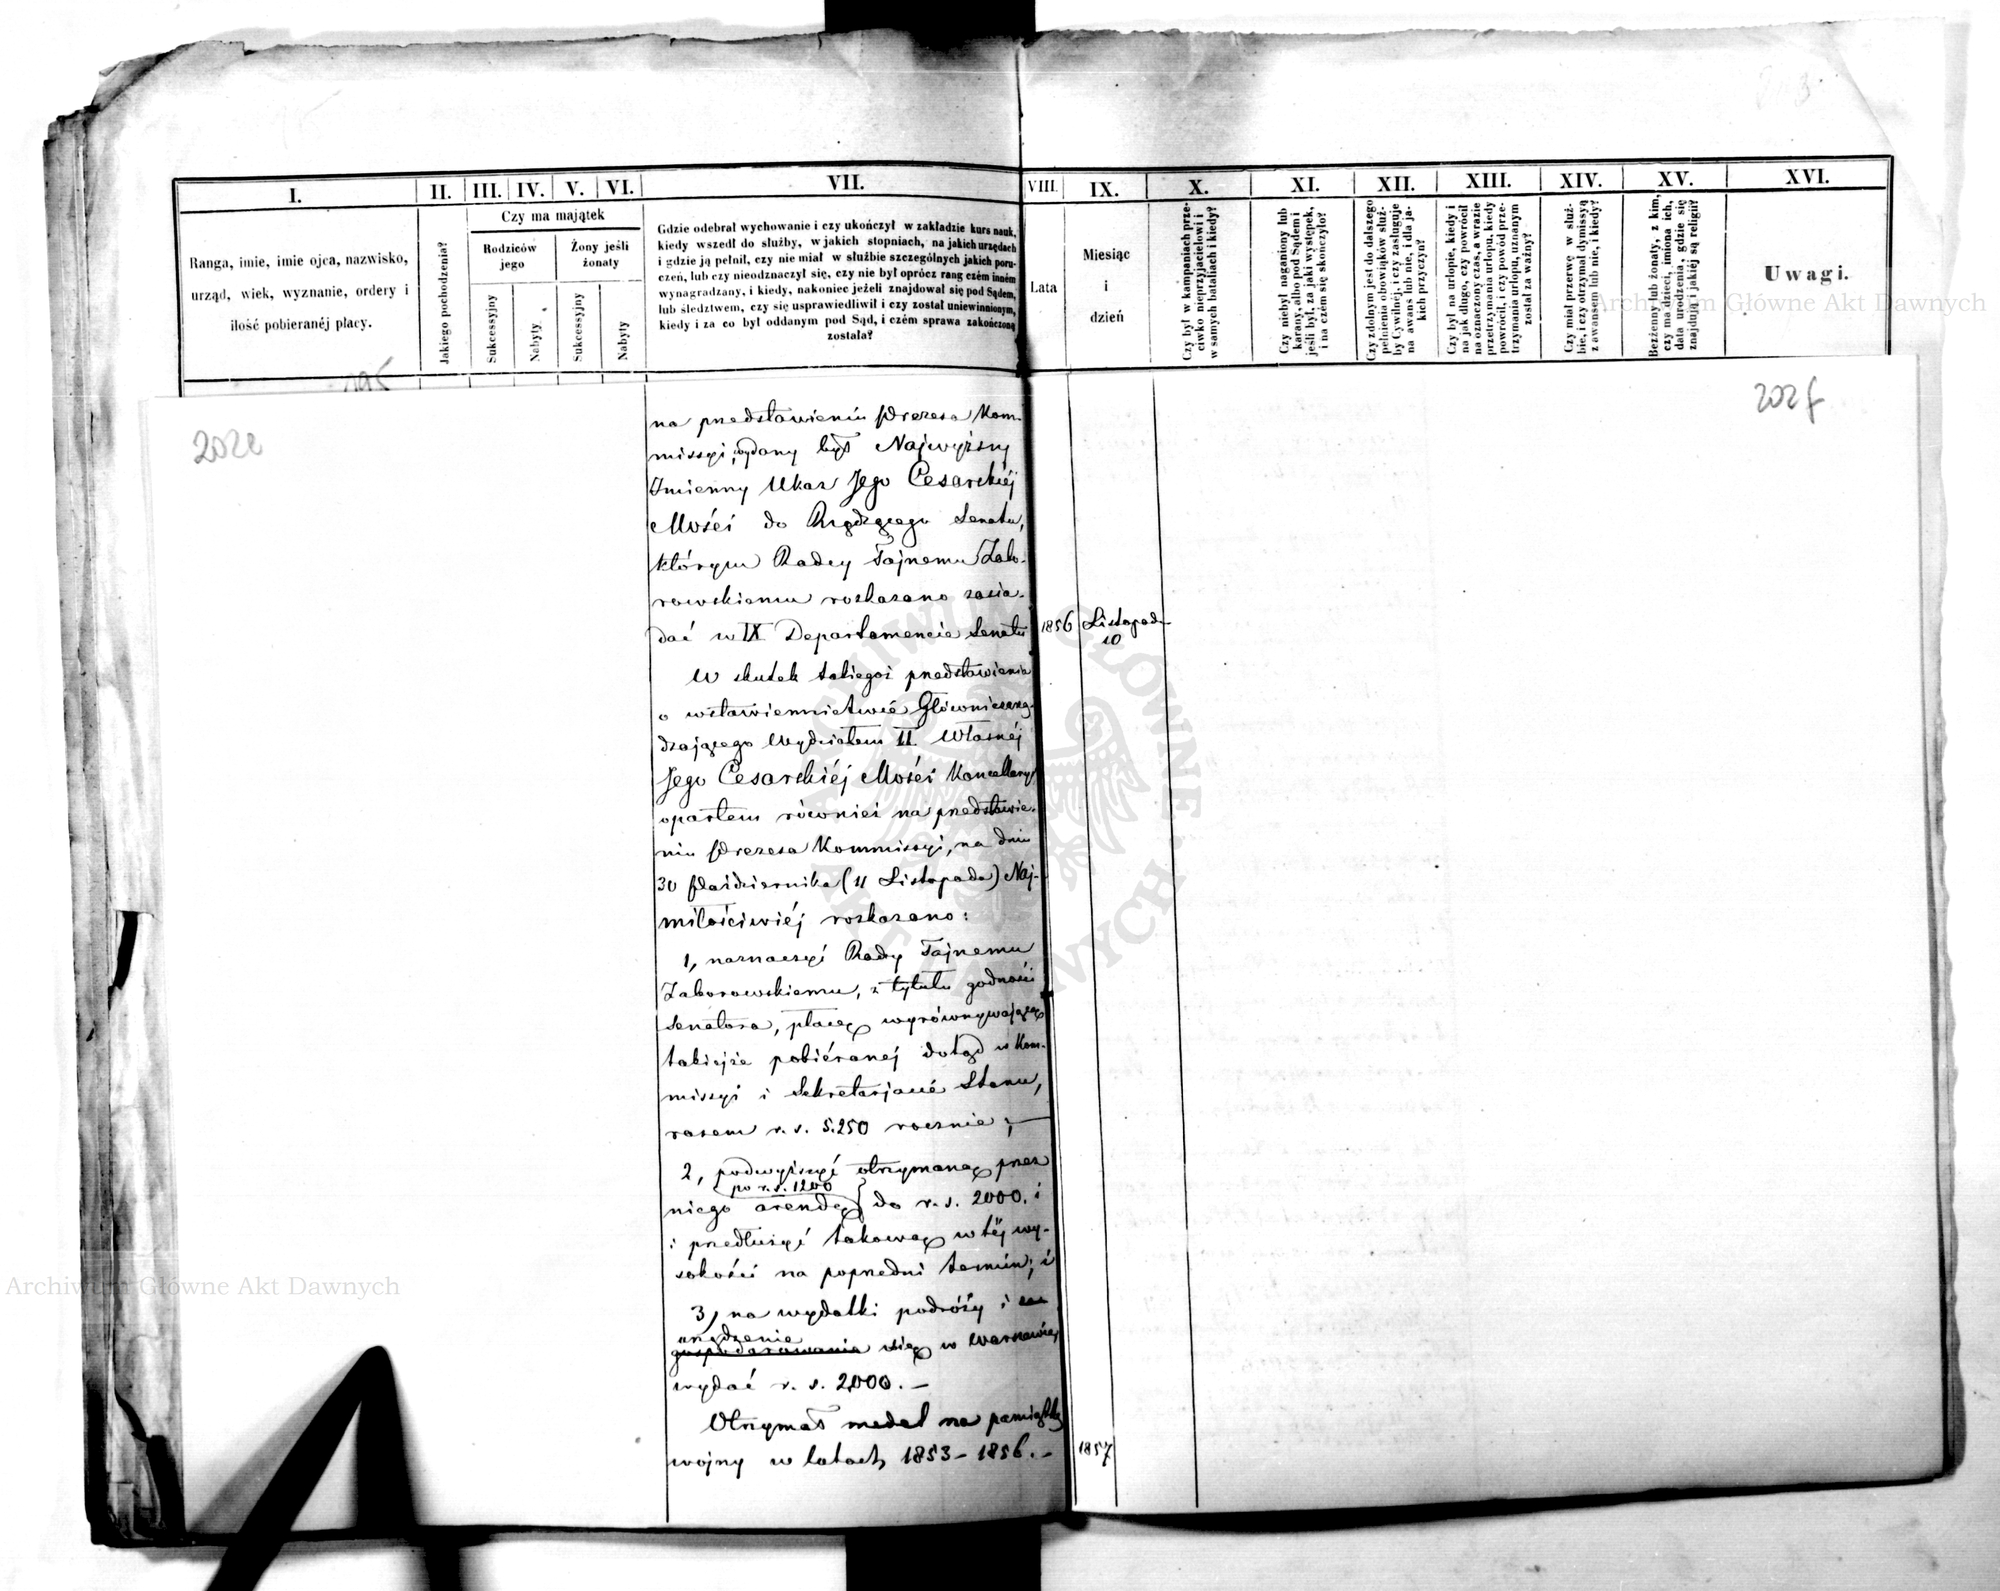 I.
II.
III.
IV.
V.
VI.
VII.
VIII.
IX.
X.
XI.
XII.
XIII.
XIV.
XV.
XVI.
Ranga, imie, imie ojca, nazwisko,
urząd, wiek, wyznanie, ordery i
ilość pobieranéj płacy.
Jakiego pochodzenia?
Czy ma majątek
Rodziców
jego
Żony jeśli
żonaty
Sukcessyjny
Nabyty
Sukcessyjny
Nabyty
Gdzie odebrał wychowanie i czy ukończył w zakładzie kurs nauk,
kiedy wszedł do służby, w jakich stopniach, na jakich urzędach
i gdzie ją pełnił, czy nie miał w służbie szczególnych jakich poru-
czeń, lub czy nieodznaczył się, czy nie był oprócz rang czém inném
wynagradzany, i kiedy, nakoniec jeżeli znajdował się pod Sądem,
lub śledztwem, czy się usprawiedliwił i czy został uniewinnionym,
kiedy i za co był oddanym pod Sąd, i czém sprawa zakończoną
została?
Lata
Miesiąc
i
dzień
Czy był w kampaniach prze-
ciwko nieprzyjacielowi i
w samych bataliach i kiedy?
Czy niebył naganiony lub
karany, albo pod Sądem i
jeśli był, za jaki występek,
i na czém się skończyło?
Czy zdolnym jest do dalszego
pełnienia obowiąków służ-
by Cywilnéj, i czy zasługuje
na awans lub nie, i dla ja-
kich przyczyn?
Czy był na urlopie, kiedy i
na jak długo, czy powrócił
na oznaczony czas, a w razie
przetrzymania urlopu, kiedy
powrócił, i czy powód prze-
trzymania urlopu, uznanym
został za ważny?
Czy miał przerwę w służ-
bie, i czy otrzymał dymissyą
z awansem lub nie, i kiedy?
Bezżenny lub żonaty, z kim,
czy ma dzieci, imiona ich,
data urodzenia, gdzie się
znajdują i jakiéj są religii?
Uwagi.
Archiwum Główne Akt Dawnych
195
202e
202f
na przedstawieniu Prezesa Kom-
missyi, wydany był Najwyższy
Imienny Ukaz Jego Cesarskiéj
Mości do Rządzącego Senatu,
którym Radcy Tajnemu Zabo-
rowskiemu rozkazano zasia-
dać w IX Departamencie Senatu
1856
Listopad
10
W skutek takiegoż przedstawienia
o wstawiennictwie Głównozarzą-
dzającego Wydziałem II Własnéj
Jego Cesarskiéj Mości Kancellaryi
opartem również na przedstawie-
niu Prezesa Kommissyi, na dniu
30 Października (11 Listopada) Naj-
miłościwiéj rozkazano:
1, naznaczyć Radcy Tajnemu
Zaborowskiemu, z tytułu godności
Senatora, płacę wyrównywającą
takiejże pobiéranej dotąd w Kom-
missyi i Sekretarjacie Stanu,
razem r. s. 5.250 rocznie; —
2, podwyższyć otrzymaną przez
po r. s. 1200
niego arendę do r. s. 2000. i
i przedłużyć takową w téj wy-
sokości na poprzedni termin; i
3, na wydatki podróży i
urządzenie
gospodarowania się w Warszawie,
wydać r. s. 2,000. —
Otrzymał medal na pamiątkę
wojny w latach 1853 – 1856. –
1857
ARCHIWUM GŁÓWNE AKT DAWNYCH
Archiwum Główne Akt Dawnych